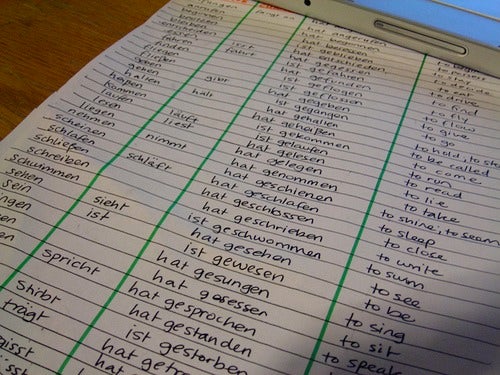 fängt an hat angefangen
hat begonnen
hat entschieden to decide
fährt ist gefahren to drive
finden hat gefunden to find
ist geflogen to fly
ist geflossen to flow
geben gibt hat gegeben to give
gehen ist gegangen to go
halten hält hat gehalten to hold, to
heißen hat geheißen to be called
kommen ist gekommen to come
laufen läuft ist gelaufen to run
lesen liest hat gelesen to read
liegen hat gelegen to lie
nehmen nimmt hat genommen to take
scheinen hat geschienen to shine, to seem
schlafen schläft hat geschlafen to sleep
schließen hat geschlossen to close
schreiben hat geschrieben to write
schwimmen ist geschwommen to swim
sehen sieht hat gesehen to see
sein ist ist gewesen to be
hat gesungen to sing
hat gesessen to sit
spricht hat gesprochen to speak
hat gestanden
stirbt ist gestorben
trägt